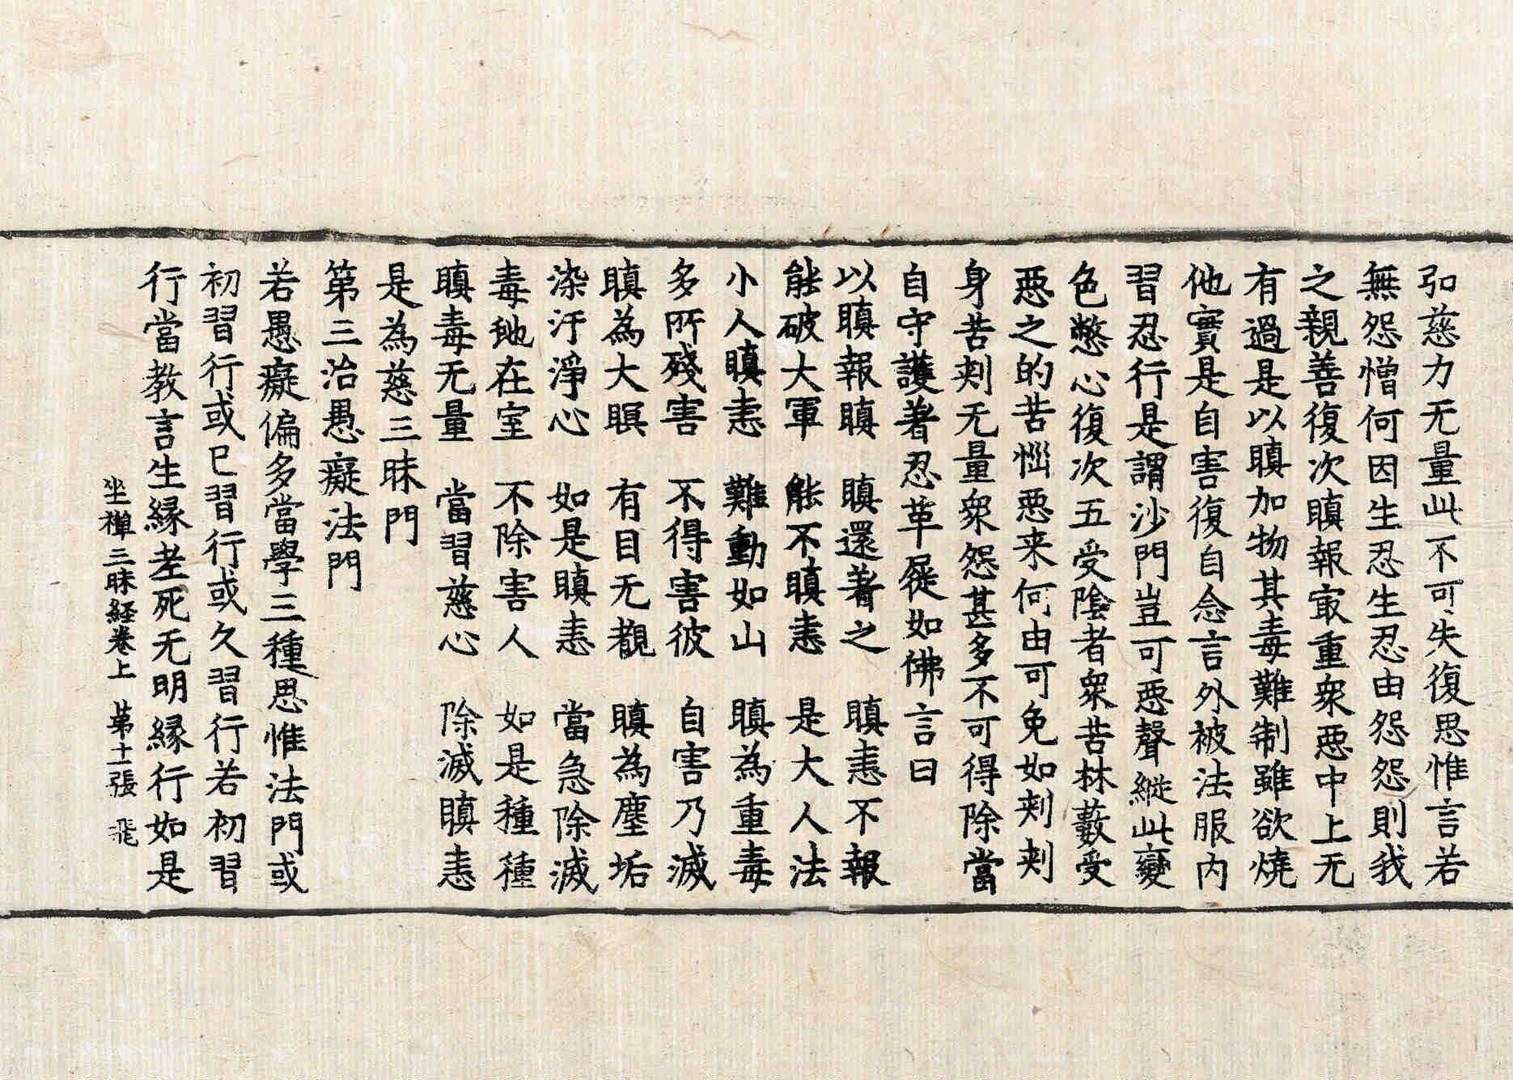 弘慈力无量此不可失復思惟言若
無怨憎何因生忍生忍由怨怨則我
之親善復次瞋報㝡重衆惡中上无
有過是以瞋加物其毒難制雖欲燒
他實是自害復自念言外被法服内
習忍行是謂沙門豈可惡聲縱此變
色憋心復次五受陰者衆苦林藪受
惡之的苦惱惡来何由可免如刺刺
身苦刺无量衆怨甚多不可得除當
自守護著忍革屣如佛言曰
以瞋報瞋　瞋還著之　瞋恚不報
能破大軍　能不瞋恚　是大人法
小人瞋恚　難動如山　瞋為重毒
多所殘害　不得害彼　自害乃滅
瞋為大瞑　有目无覩　瞋為塵垢
染汙淨心　如是瞋恚　當急除滅
毒虵在室　不除害人　如是種種
瞋毒无量　當習慈心　除滅瞋恚
是為慈三昧門
第三治愚癡法門
若愚癡偏多當學三種思惟法門或
初習行或已習行或久習行若初習
行當教言生緣老死无明緣行如是
坐禪三昧経卷上　第十一張　飛